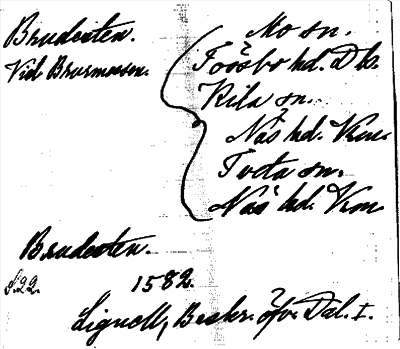 Brudesten.
Vid Brurmossen.
Mo sn.
Tössbo hd. Dls.
Kila sn.
Näs hd. Vrm.
Tveta sn.
Näs hd. Vrm
Brudesten.
S.22. 1582.
Lignell, Beskr. öfv. Dal. I.